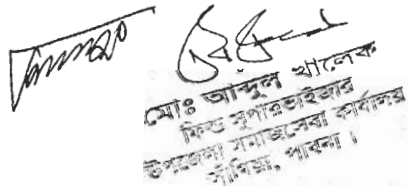 মোঃ আব্দুল খালেক
ফিল্ড সুপারভাইজার
উপজেলা সমাজসেবা কার্যালয়
সাঁথিয়া, পাবনা।